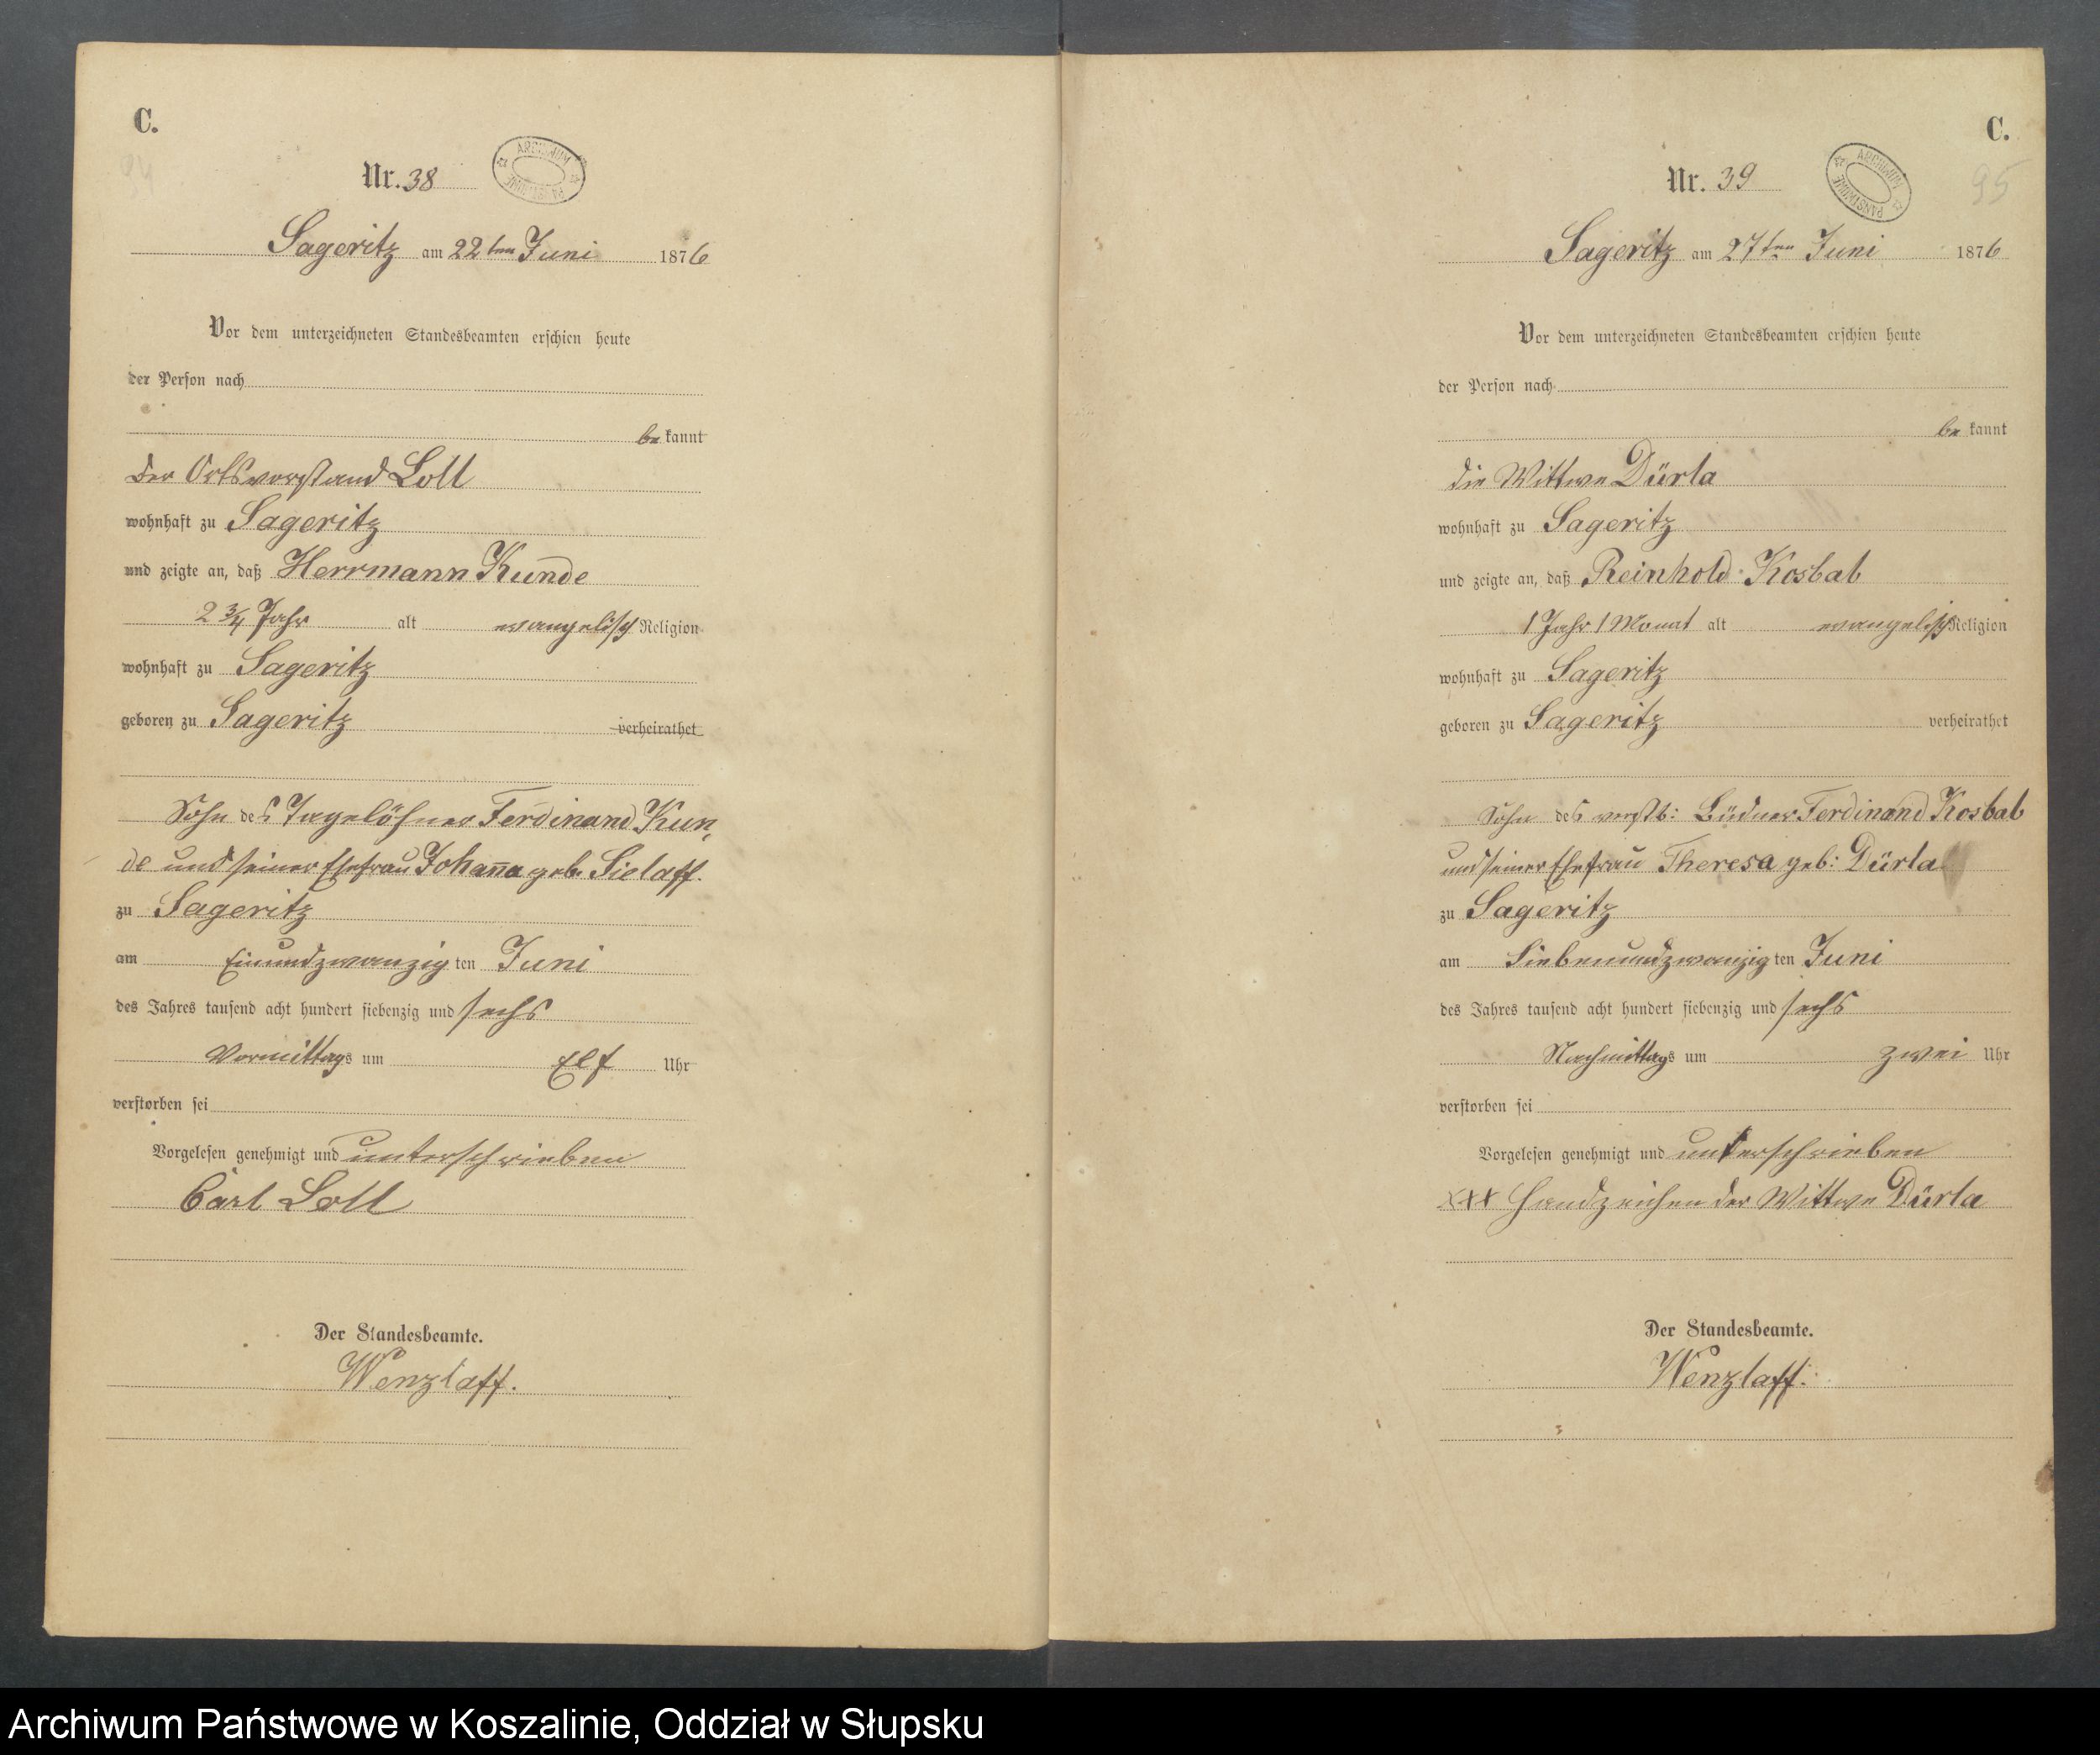 C.
94
Nr. 38
ARCHIWUM PAŃSTWOWE
Sageritz am 22ten Juni 1876
Vor dem unterzeichneten Standesbeamten erschien heute
der Person nach
be kannt
der Ortsvorstand Loll
wohnhaft zu Sageritz
und zeigte an, daß Herrmann Kunde
2 3/4 Jahr alt evangelisch Religion
wohnhaft zu Sageritz
geboren zu Sageritz verheirathet
Sohn des Tagelöhner Ferdinand Kun-
de und seiner Ehefrau Johan̄a geb. Sielaff.
zu Sageritz
am Einundzwanzig ten Juni
des Jahres tausend acht hundert siebenzig und sechs
Vormittags um Elf Uhr
verstorben sei
Vorgelesen genehmigt und unterschrieben
Carl Loll
Der Standesbeamte.
Wenzlaff.
C.
95
Nr. 39
ARCHIWUM PAŃSTWOWE
Sageritz am 27ten Juni 1876
Vor dem unterzeichneten Standesbeamten erschien heute
der Person nach
be kannt
die Wittwe Dürla
wohnhaft zu Sageritz
und zeigte an, daß Reinhold Kosbab
1 Jahr 1 Monat alt evangelisch Religion
wohnhaft zu Sageritz
geboren zu Sageritz verheirathet
Sohn des verstb: Büdner Ferdinand Kosbab
und seiner Ehefrau Theresa geb: Dürla
zu Sageritz
am Siebenundzwanzig ten Juni
des Jahres tausend acht hundert siebenzig und sechs
Nachmittags um zwei Uhr
verstorben sei
Vorgelesen genehmigt und unterschrieben
XXX Handzeichen der Wittwe Dürla
Der Standesbeamte.
Wenzlaff.
Archiwum Państwowe w Koszalinie, Oddział w Słupsku